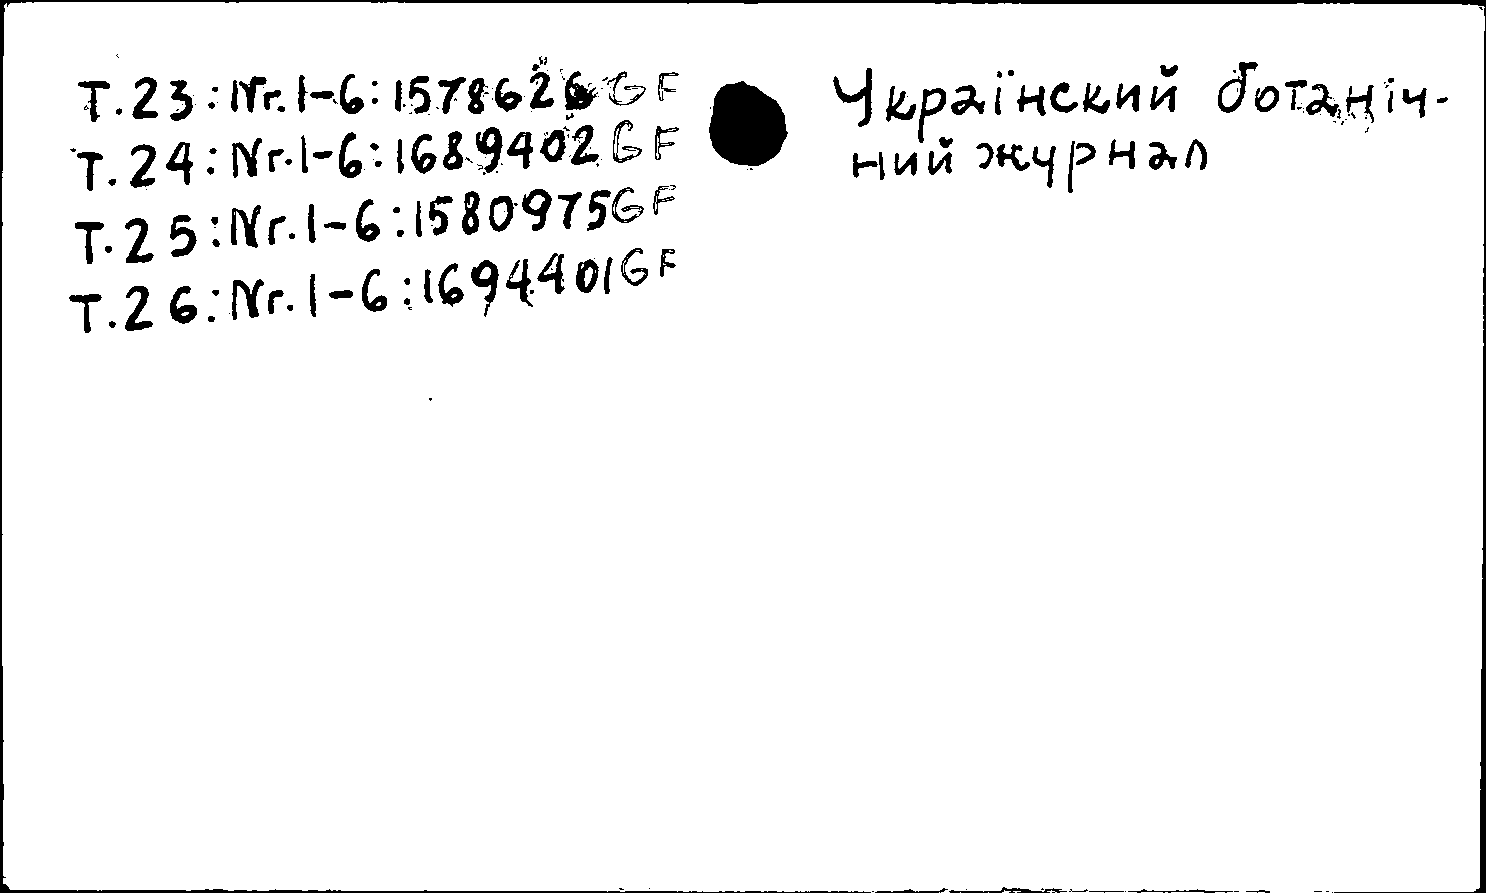 T.23:Nr.1-6:1578626 GF
T.24:Nr.1-6:1689402 GF
T.25:Nr.1-6:1580975 GF
T.26:Nr.1-6:1694401 GF
Українский ботаніч-
ний журнал